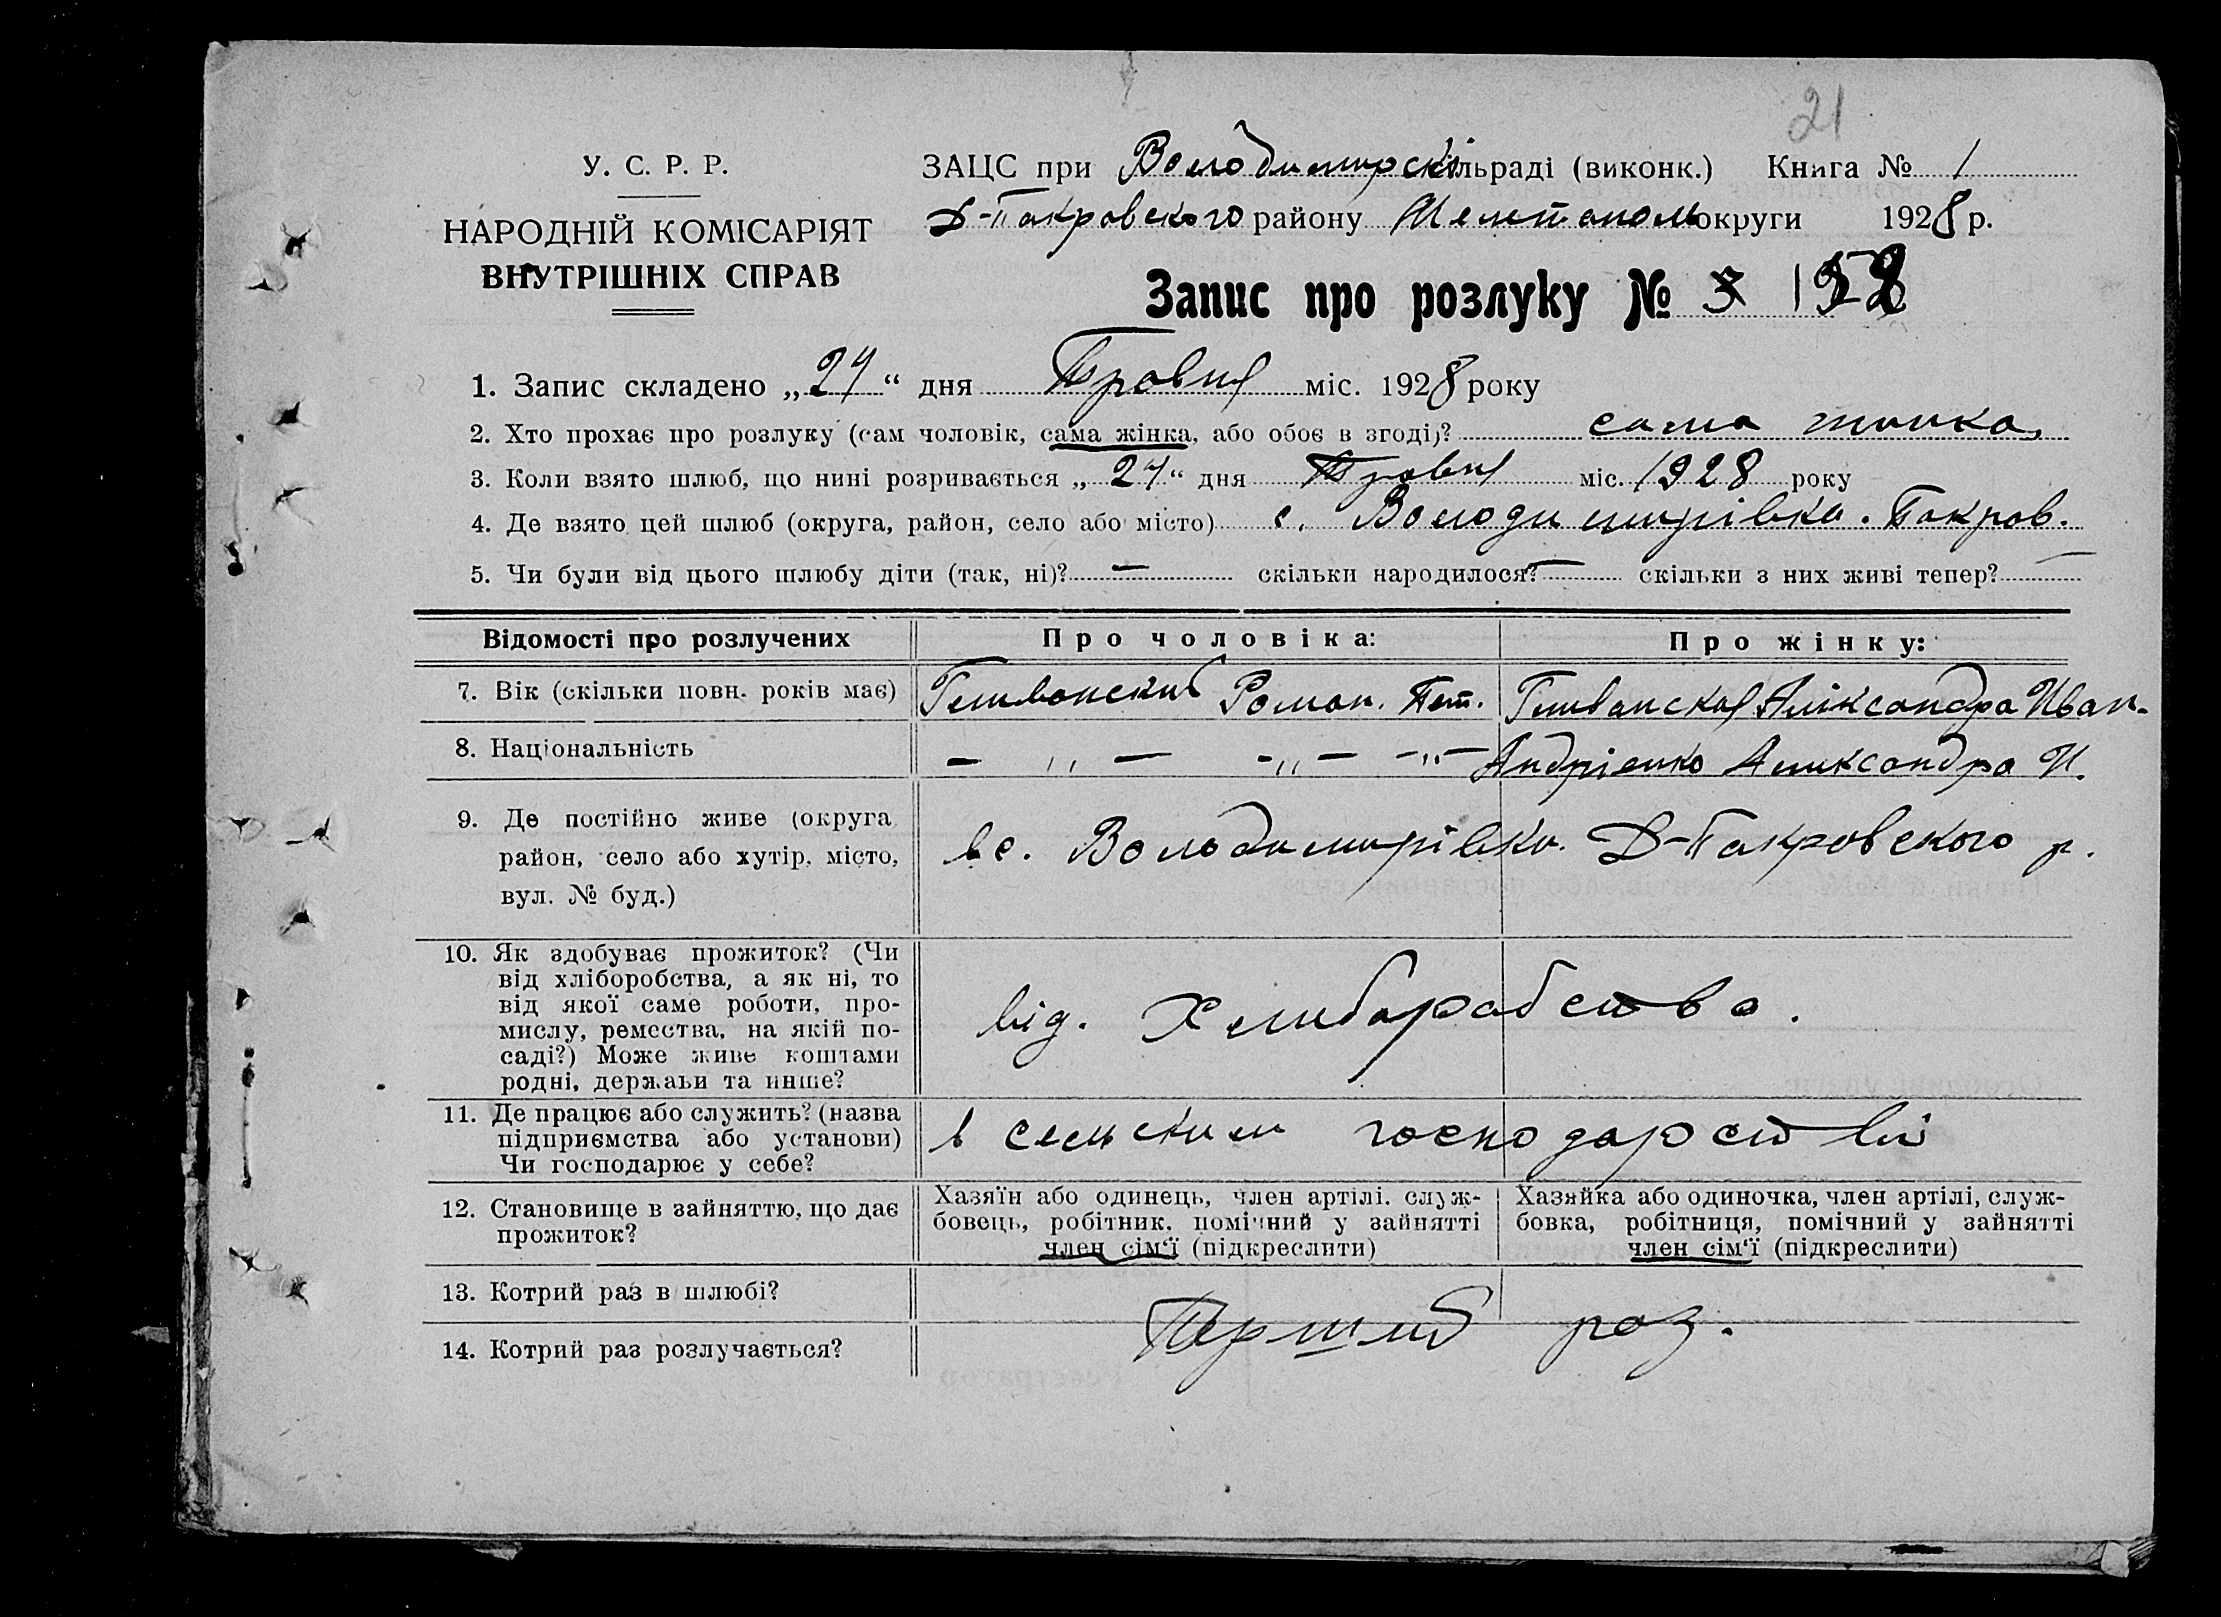 21
У. С. Р. Р.
НАРОДНІЙ КОМІСАРІЯТ
ВНУТРІШНІХ СПРАВ
ЗАЦС при Володимирскі сільраді (виконк.) Книга № 1
Д-Пакровского району округи 1928 р.
Запис про розлуку №
1. Запис складено „24“ дня міс. 1928 року
2. Хто прохає про розлуку (сам чоловік, сама жінка, або обоє в згоді)? сама жинка
3. Коли взято шлюб, що нині розривається „24“ дня міс. 1928 року
4. Де взято цей шлюб (округа, район, село або місто) с. Володимирівка. Пакров.
5. Чи були від цього шлюбу діти (так, ні)? — скільки народилося? — скільки з них живі тепер? —
Відомості про розлучених Про чоловіка: Про жінку:
7. Вік (скільки повн. років має) Роман. Пет. Аліксандра Иван.
8. Національність — „ — -„— -„— Андріенко Аликсандра И.
9. Де постійно живе (округа
район, село або хутір, місто,
вул. № буд.)
вс. Володимирівка. Д-Пакровского р.
10. Як здобуває прожиток? (Чи
від хліборобства, а як ні, то
від якої саме роботи, про-
мислу, ремества, на якій по-
саді?) Може живе коштами
родні, держави та инше?
від. Хлибарабства.
11. Де працює або служить? (назва
підприємства або установи)
Чи господарює у себе?
в сельским господарстві
12. Становище в зайняттю, що дає
прожиток?
Хазяїн або одинець, член артілі. служ-
бовець, робітник, помічний у зайнятті
член сім‘ї (підкреслити)
Хазяйка або одиночка, член артілі, служ-
бовка, робітниця, помічний у зайнятті
член сім‘ї (підкреслити)
13. Котрий раз в шлюбі?
Перший раз.
14. Котрий раз розлучається?